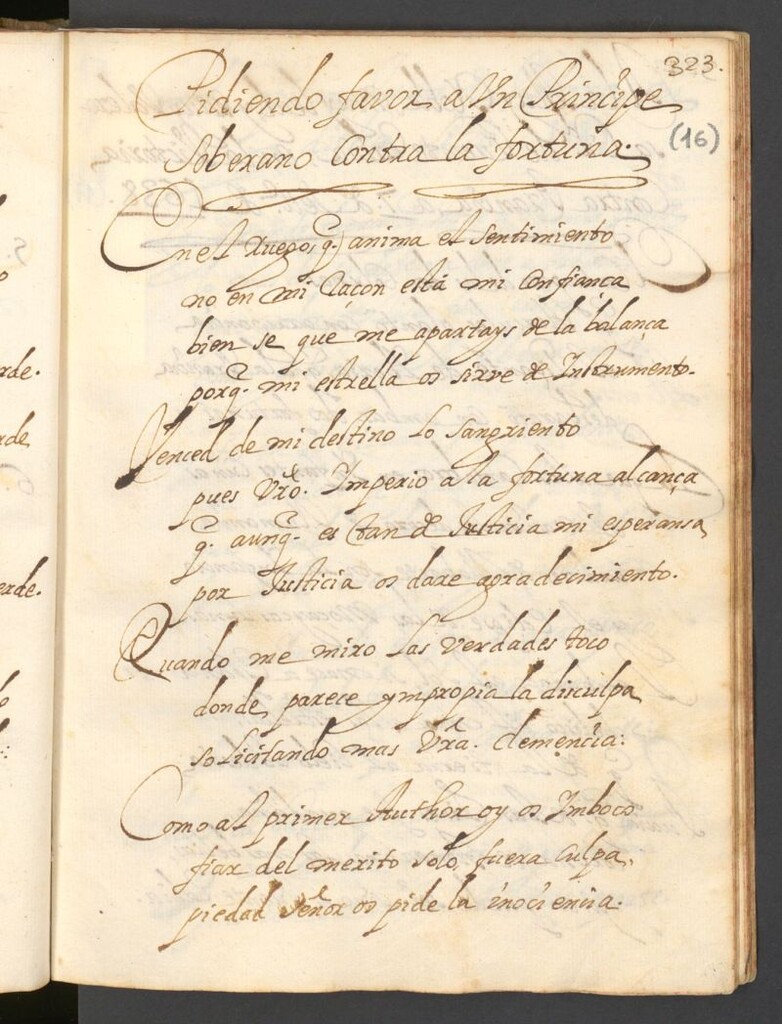 323.
(16)
Pidiendo favor a Vn Principe
Soberano Contra la fortuna.
En el Ruego, q. anima el Sentimiento
no en mi Raçon està mi Confiança
bien se que me apartays de la balança
porq. mi estrella os sirve de Instrumento.
Venced de mi destino lo Sangriento
pues Vrõ. Imperio a la fortuna alcança
q. aunq. es tan de Justicia mi esperansa
por Justicia os dare agradecimiento.
Quando me miro las verdades toco
donde parece ympropia la disculpa
solicitando mas Vrã. Clemencia:
Como al primer Author oy os Imboco
fiar del merito solo, fuera Culpa,
piedad Señor os pide la inociencia.
rde.
rde
erde.